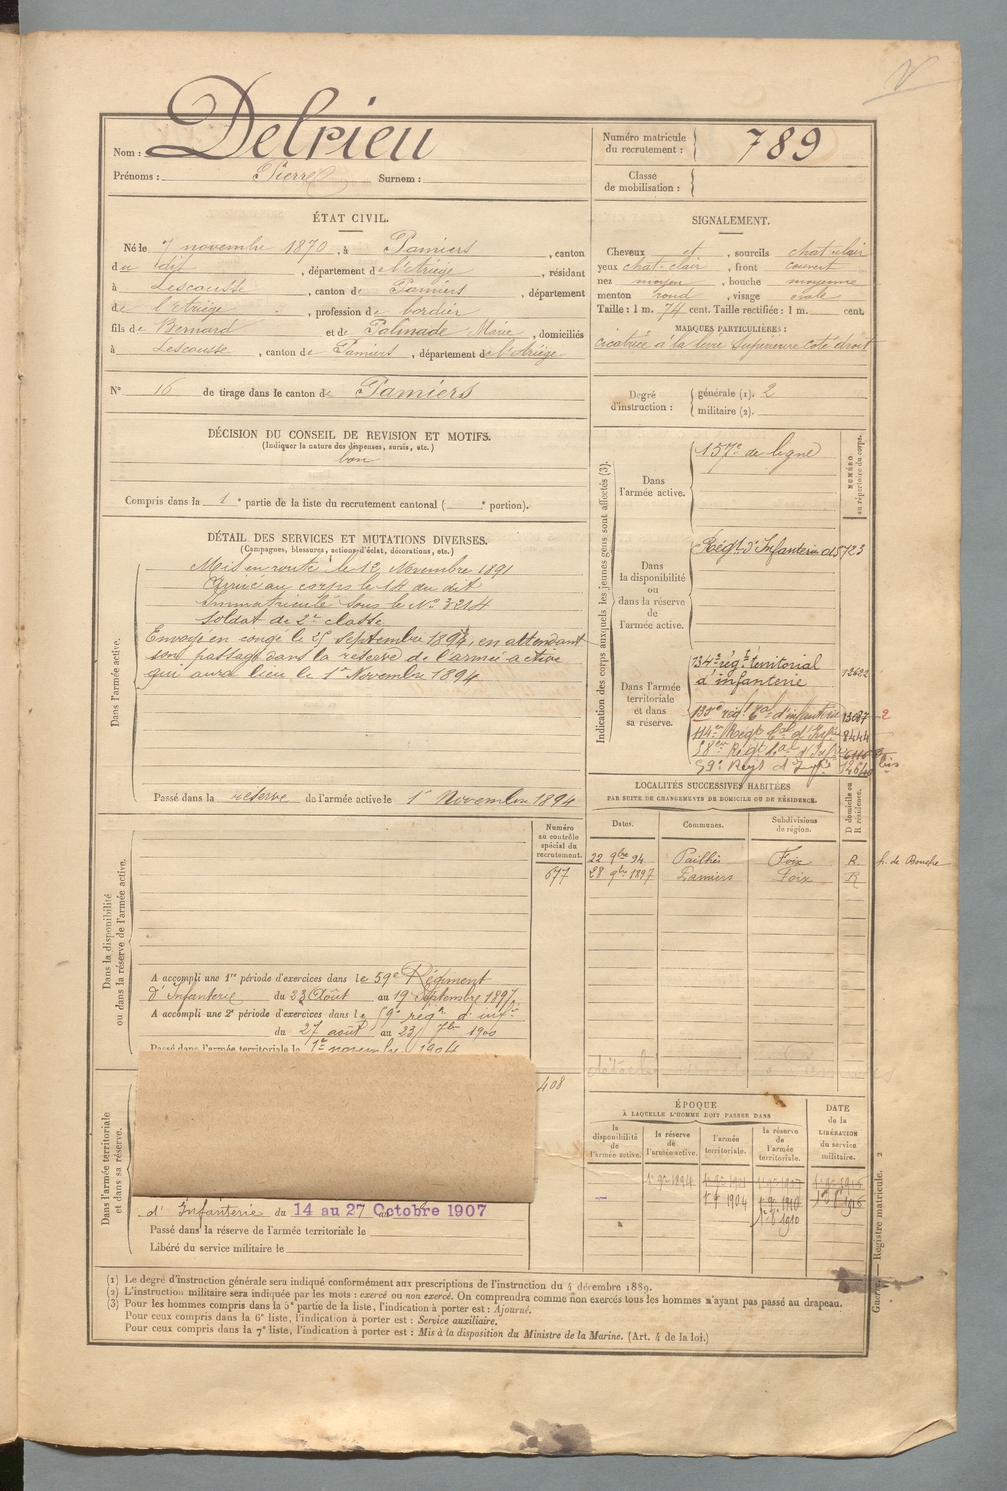 Nom : Delrieu
Prénoms : Pierre Surnom :
Numéro matricule
du recrutement : 789
Classe
de mobilisation :
ÉTAT CIVIL.
Né le 7 novembre 1870, à Pamiers, canton
du dit, département de l'Ariège, résidant
à Lescousse, canton de Pamiers, département
de l'Ariège, profession de bordier
fils de Bernard et de Palmade Marie, domiciliés
à Lescousse, canton de Pamiers, département de l'Ariège
N° 16 de tirage dans le canton de Pamiers
DÉCISION DU CONSEIL DE REVISION ET MOTIFS.
(Indiquer la nature des dispenses, sursis, etc.)
bon
Compris dans la 1e partie de la liste du recrutement cantonal ( e portion).
SIGNALEMENT.
Cheveux et, sourcils chat-clair
yeux chat-clair, front couvert
nez moyen, bouche moyenne
menton rond, visage ovale
Taille : 1 m. 74 cent. Taille rectifiée : 1 m. cent.
MARQUES PARTICULIÈRES :
cicatrice à la lèvre supérieure coté droit
Degré
d'instruction :
générale (1). 2
militaire (2).
DÉTAIL DES SERVICES ET MUTATIONS DIVERSES.
(Campagnes, blessures, actions d'éclat, décorations, etc.)
Dans l'armée active.
Mis en route le 12 Novembre 1891
Arrivé au corps le 14 du dit
Immatriculé sous le N° 3214
Soldat de 2e classe
Envoyé en congé le 25 Septembre 1894, en attendant
son passage dans la réserve de l'armée active
qui aura lieu le 1er Novembre 1894
Passé dans la réserve de l'armée active le 1er Novembre 1894
Indication des corps auxquels les jeunes gens sont affectés (3).
NUMÉRO
au répertoire du corps.
Dans
l'armée active.
157e de ligne
Dans
la disponibilité
ou
dans la réserve
de
l'armée active.
Régt d'Infanterie 15723
Dans l'armée
territoriale
et dans
sa réserve.
134e rég.t territorial
d'infanterie 12622
135e régt tal d'infanterie 13087 2
114e Régt tal d'Infie 8444
Régt tal d'Infie
59e Regt d'Infie bis
LOCALITÉS SUCCESSIVES HABITÉES
PAR SUITE DE CHANGEMENTS DE DOMICILE OU DE RÉSIDENCE.
D domicile ou
R résidence.
Dates. Communes. Subdivisions
de région.
22 9bre 94 Pailhès Foix R.
28 9bre 1897 Pamiers Foix R
Numéro
au contrôle
spécial du
recrutement.
677
Dans la disponibilité
ou dans la réserve de l'armée active.
A accompli une 1re période d'exercices dans le 59e Régiment
d'Infanterie du 23 Août au 19 Septembre 1897.
A accompli une 2e période d'exercices dans le 59e régt d'infie
du 27 août au 23 7bre 1900
Passé dans l'armée territoriale le 1er novembre 1904
408
Dans l'armée territoriale
et dans sa réserve.
d'Infanterie du 14 au 27 Octobre 1907
Passé dans la réserve de l'armée territoriale le
Libéré du service militaire le
ÉPOQUE
À LAQUELLE L'HOMME DOIT PASSER DANS
DATE
de la
LIBÉRATION
du service
militaire.
la
disponibilité
de
l'armée active.
la réserve
de
l'armée active.
l'armée
territoriale.
la réserve
de
l'armée
territoriale.
1er 9bre 1894
1er 9 1904 1er 9 1910
1er 8 1910
Guerre. — Registre matricule. 2
(1) Le degré d'instruction générale sera indiqué conformément aux prescriptions de l'instruction du 4 décembre 1889.
(2) L'instruction militaire sera indiquée par les mots : exercé ou non exercé. On comprendra comme non exercés tous les hommes n'ayant pas passé au drapeau.
(3) Pour les hommes compris dans la 5e partie de la liste, l'indication à porter est : Ajourné.
Pour ceux compris dans la 6e liste, l'indication à porter est : Service auxiliaire.
Pour ceux compris dans la 7e liste, l'indication à porter est : Mis à la disposition du Ministre de la Marine. (Art. 4 de la loi.)